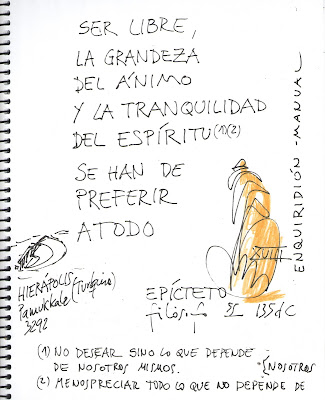 SER LIBRE,
LA GRANDEZA
DEL ÁNIMO
Y LA TRANQUILIDAD
DEL ESPÍRITU (1)(2)
SE HAN DE
PREFERIR
A TODO
ENQUIRIDIÓN - MANUAL
XVIII
HIERÁPOLIS
Pamukkale (Turquía)
3292
EPÍCTETO
filósof 55 135 dC
(1) NO DESEAR SINO LO QUE DEPENDE
DE NOSOTROS MISMOS.
{NOSOTROS
(2) MENOSPRECIAR TODO LO QUE NO DEPENDE DE